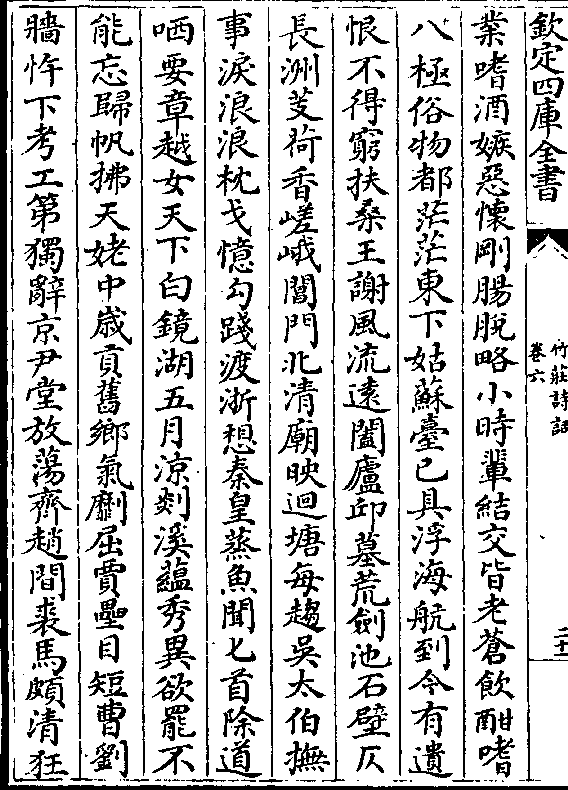 欽定四庫全書
竹莊詩話
卷六
二十
業嗜酒嫉惡懷剛腸脫略小時輩結交皆老蒼飲酣嗜
八極俗物都茫茫東下姑蘇臺已具浮海航到今有遺
恨不得窮扶桑王謝風流遠闔廬邱墓荒劍池石壁仄
長洲芰荷香嵯峨閶門北清廟映迴塘每趨吳太伯撫
事淚浪浪枕戈憶勾踐渡浙想秦皇蒸魚聞匕首除道
哂要章越女天下白鏡湖五月涼剡溪蘊秀異欲罷不
能忘歸帆拂天姥中歲貢舊鄉氣劘屈賈壘目短曹劉
牆忤下考工第獨辭京尹堂放蕩齊趙間裘馬頗清狂